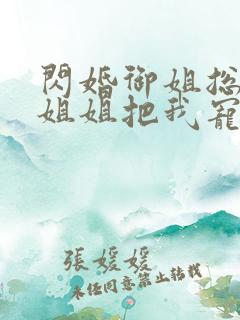 閃婚御姐總
姐姐把我寵
張媛媛
未經同意禁止轉載